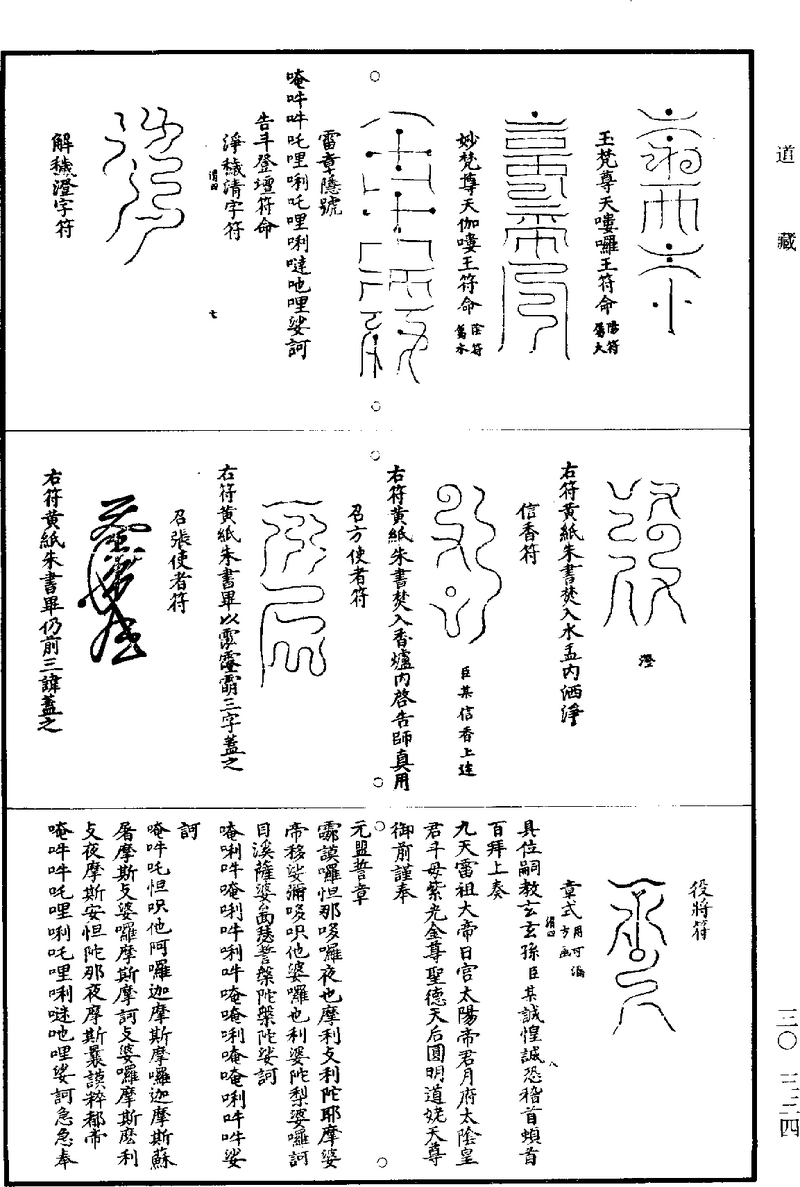 道藏
玉梵尊天嘍囉王符命 陽符屬火
妙梵尊天伽嘍王符命 陰符屬水
雷章隱號
唵吽吽吒哩唎吒哩唎噠吔哩娑訶
告斗登壇符命
淨穢清字符
解穢澄字符
七
澄
右符黃紙朱書焚入水盂內洒淨
信香符
臣某信香上達
右符黃紙朱書焚入香爐內啓告師真用
召方使者符
右符黃紙朱書畢以霐霻霸三字蓋之
召張使者符
右符黃紙朱書畢仍前三諱蓋之
役將符
章式
具位嗣教玄玄孫臣某誠惶誠恐稽首頓首
八
百拜上奏
九天雷祖大帝日宮太陽帝君月府太陰皇
君斗母紫光金尊聖德天后圓明道姥天尊
御前謹奉
元盟誓章
那謨囉怛那哆囉夜也摩利攴利陀耶摩婆
帝移娑彌哆呮他婆囉也利婆陀梨婆囉訶
目溪薩婆
陀槃陀娑訶
唵唎吽唵唎吽唎吽唵唵唎唵唵唎吽吽娑
訶
唵吽吒怛呮他阿囉迦摩斯摩囉迦摩斯蘇
屠摩斯攴婆囉摩斯摩訶攴婆囉摩斯麽利
攴夜摩斯安怛陀那夜摩斯曩謨粹都帝
唵吽吽吒哩唎吒哩唎噠吔哩娑訶急急奉
三〇 三三四